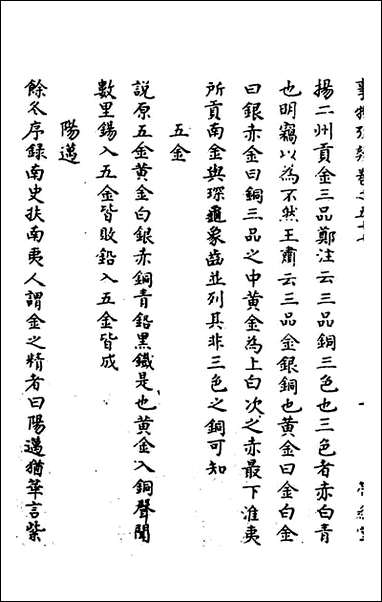 揚二州貢金三品鄭注云三品銅三色也三色者赤白青
也明竊以為不然王肅云三品金銀銅也黃金曰金白金
曰銀赤金曰銅三品之中黃金為上白次之赤最下淮夷
所貢南金與琛龜象齒並列其非三色之銅可知
五金
說原五金黃金白銀赤銅青鉛黑鐵是也黃金入銅聲聞
數里錫入五金皆敗鉛入五金皆成
陽邁
餘冬序録南史扶南夷人謂金之精者曰陽邁猶華言紫